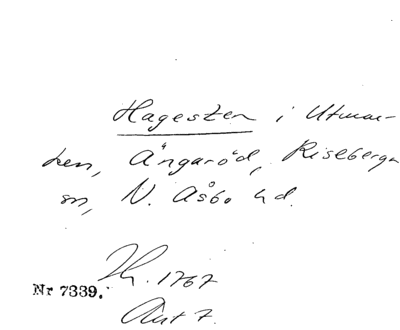 Hagesten i Utmar-
ken, Ängaröd, Riseberga
sn, N. Åsbo hd.
1767
Nr 7339.
Akt 7.